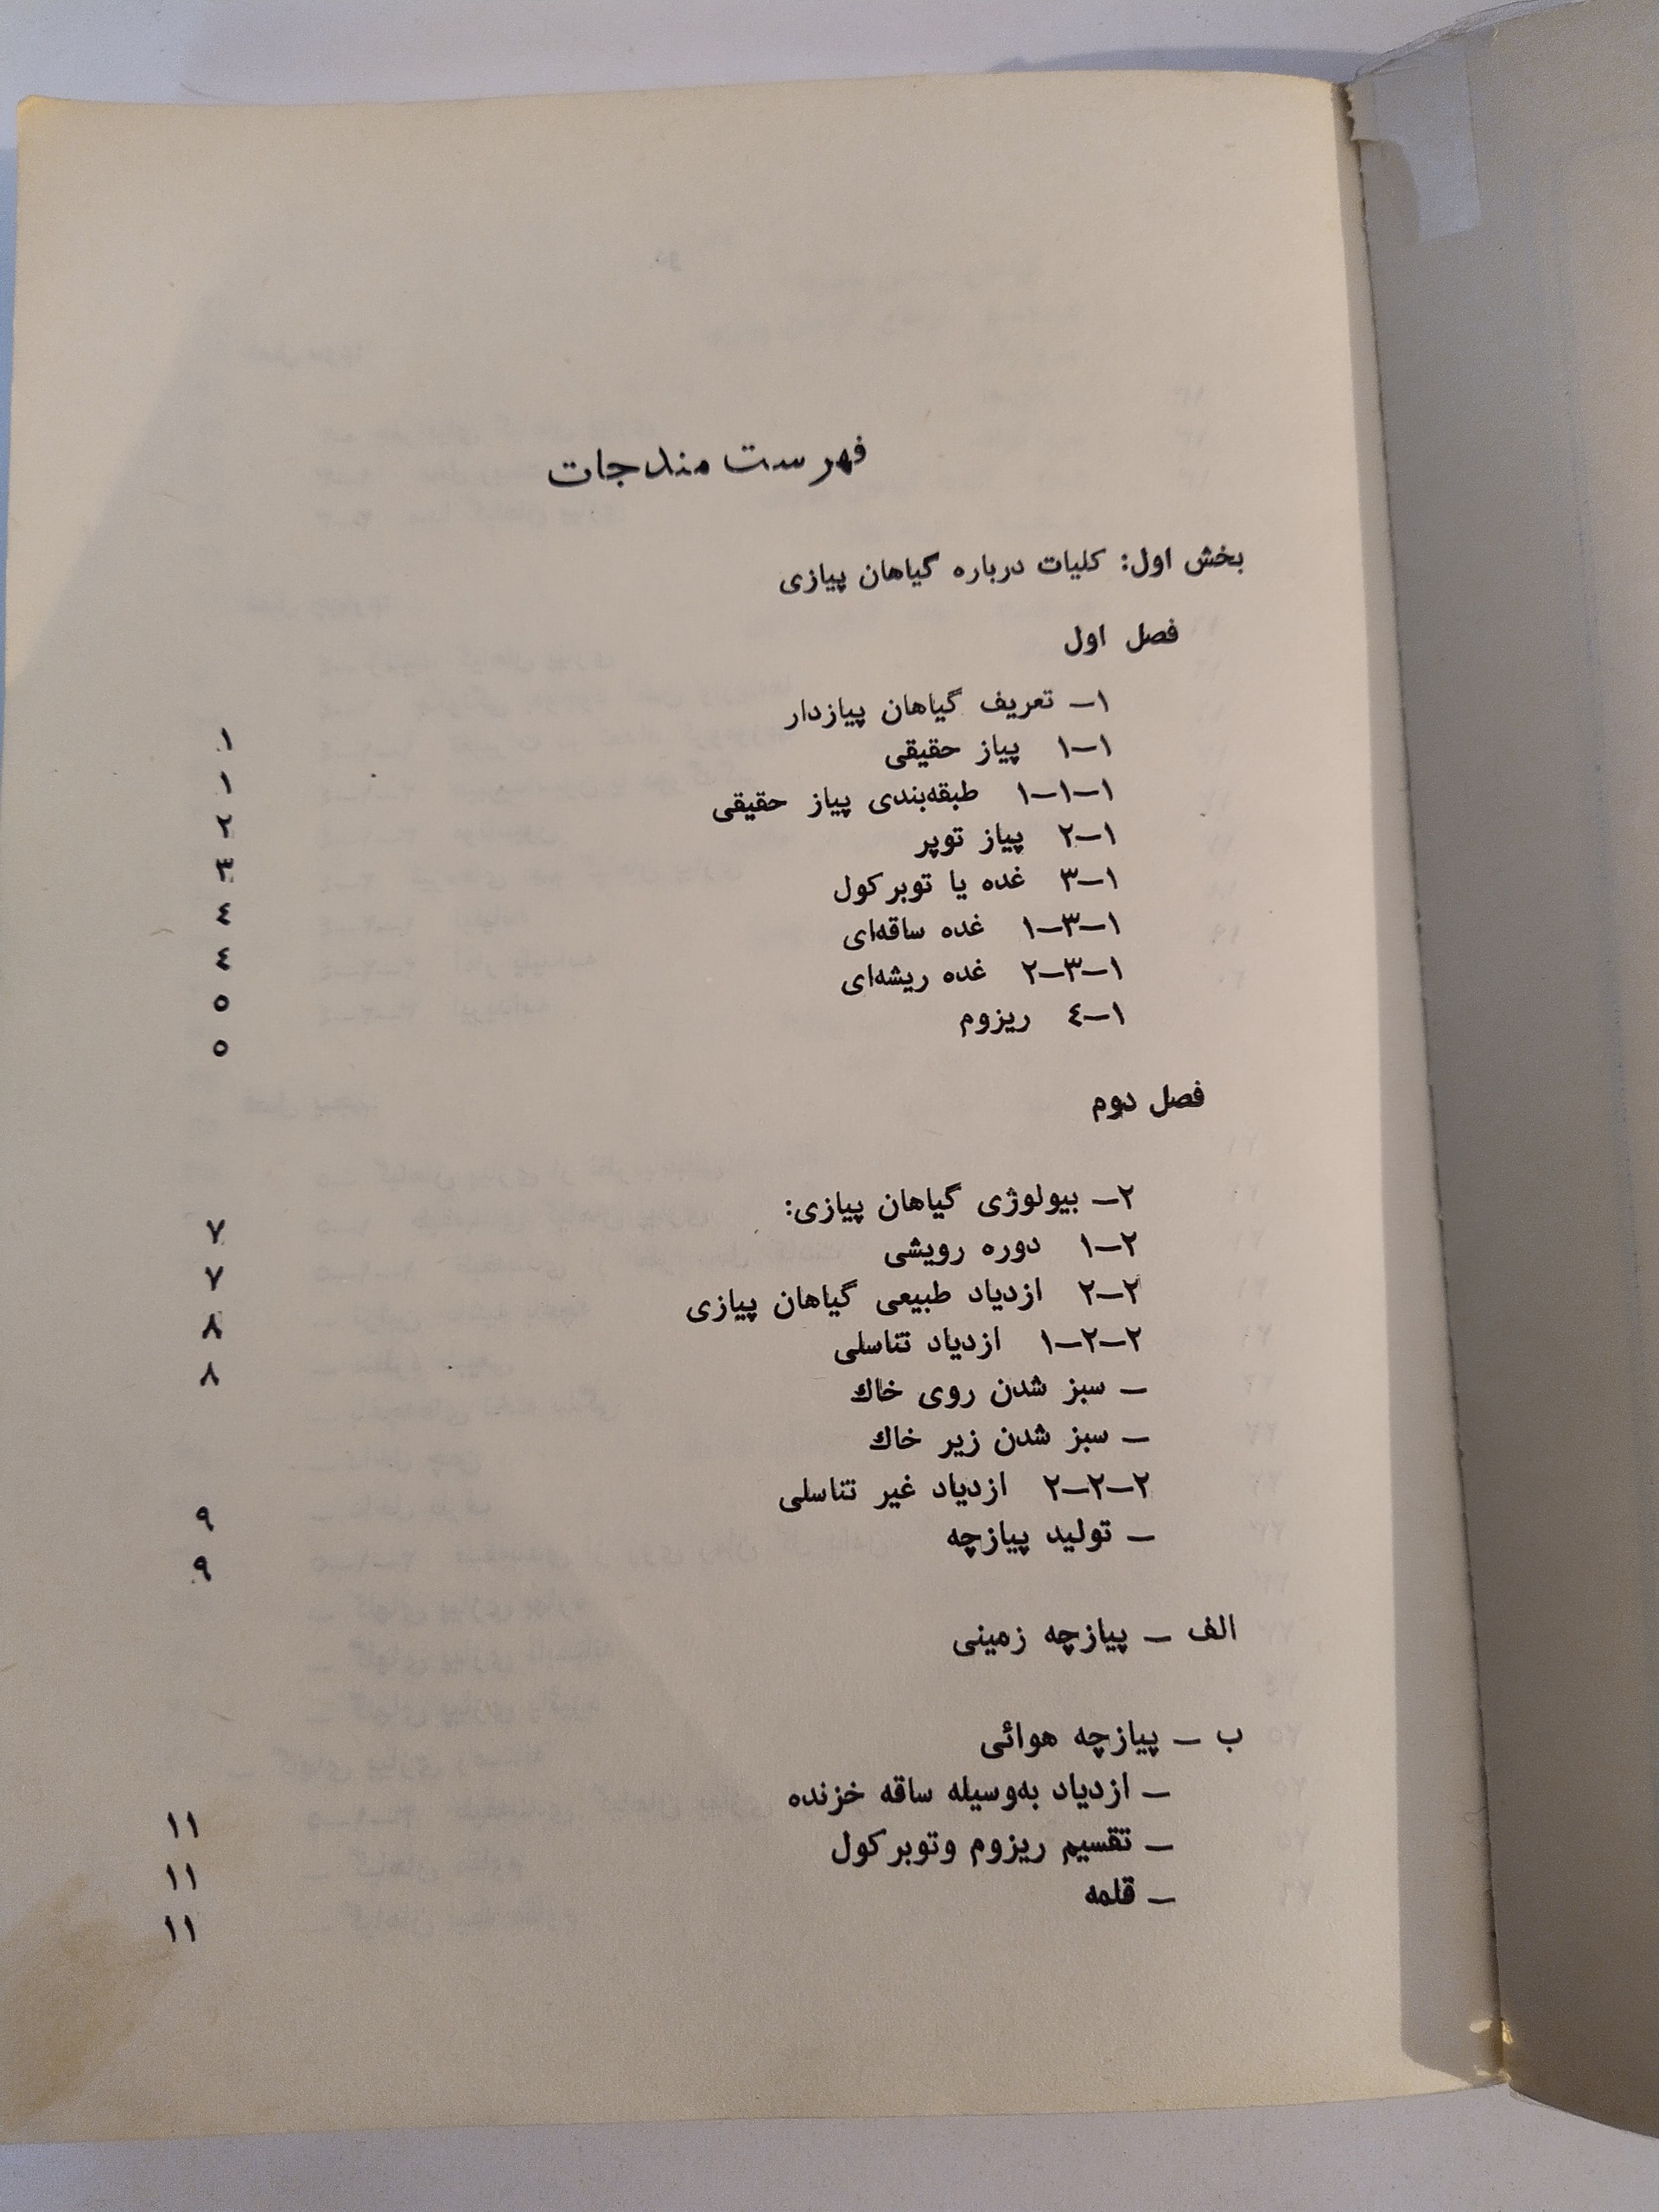 فهرست مندجات
بخش اول: کلیات درباره گیاهان پیازی
فصل اول
۱– تعریف گیاهان پیازدار ۱
۱–۱ پیاز حقیقی ۱
۱–۱–۱ طبقه‌بندی پیاز حقیقی ۲
۱–۲ پیاز توپر ۳
۱–۳ غده یا توبرکول ٤
۱–۳–۱ غده ساقه‌ای ٤
۱–۳–۲ غده ریشه‌ای ٥
۱–٤ ریزوم ٥
فصل دوم
۲– بیولوژی گیاهان پیازی: ۷
۲–۱ دوره رویشی ۷
۲–۲ ازدیاد طبیعی گیاهان پیازی ۸
۲–۲–۱ ازدیاد تناسلی ۸
– سبز شدن روی خاك
– سبز شدن زیر خاك
۲–۲–۲ ازدیاد غیر تناسلی ۹
– تولید پیازچه ۹
الف – پیازچه زمینی
ب – پیازچه هوائی
– ازدیاد به‌وسیله ساقه خزنده ۱۱
– تقسیم ریزوم وتوبرکول ۱۱
– قلمه ۱۱